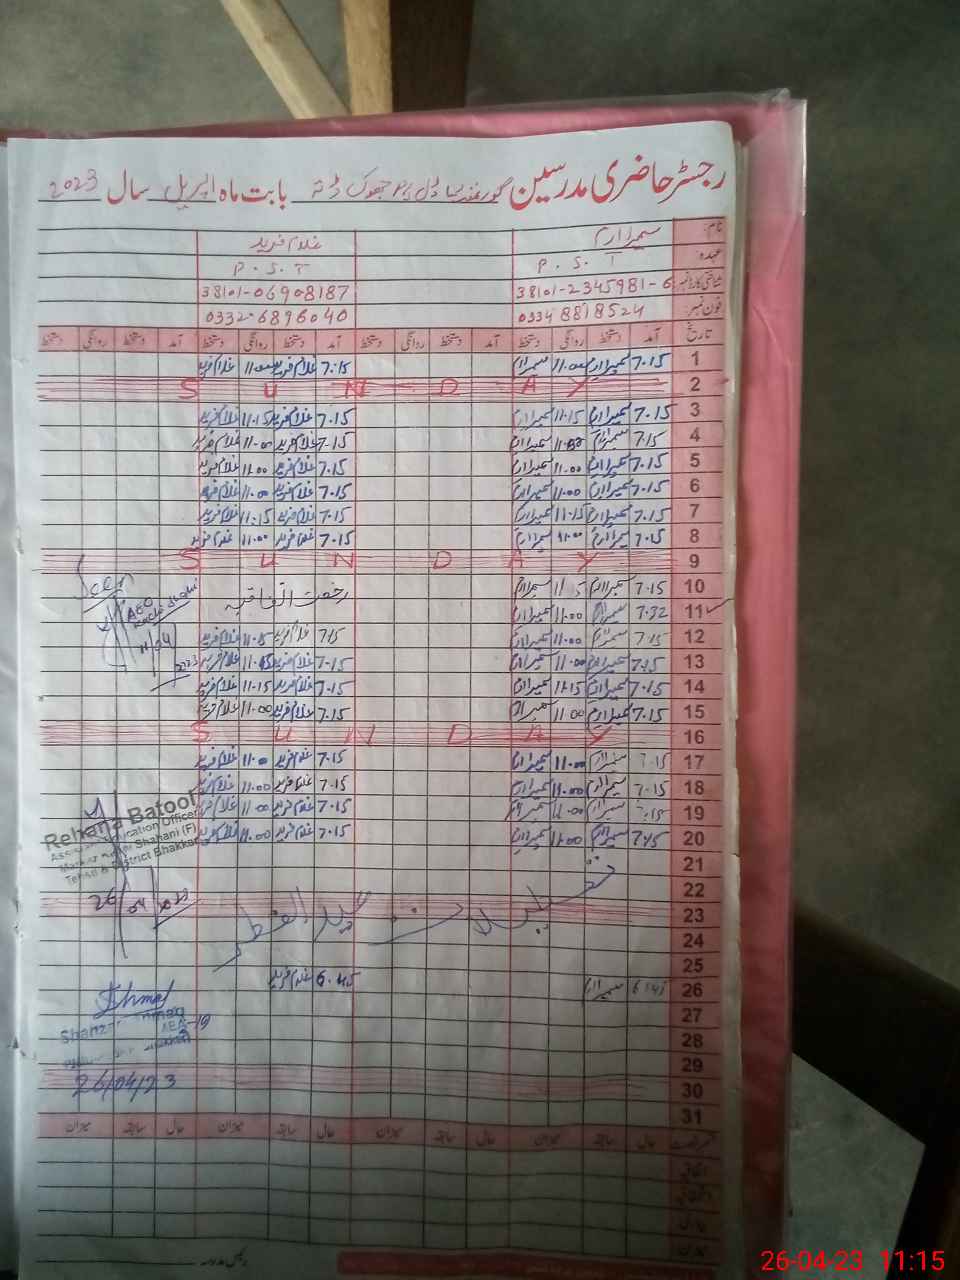 رجسٹر حاضری مدرسین گورنمنٹ جھوک بابت ماہ اپریل سال 2023
نام: سمیرا ارم غلام فرید
عہدہ P.S.T P.S.T
شناختی کارڈ نمبر 38101-2345981-6 38101-06908187
فون نمبر: 0334 8818524 0332-6896040
تاریخ آمد دستخط روانگی دستخط آمد دستخط روانگی دستخط آمد دستخط روانگی دستخط آمد دستخط روانگی دستخط
1 7.15 سمیرا ارم 11.00 سمیرا ارم 7.15 غلام فرید 11.00 غلام فرید
2 S U N D A Y
3 7.15 سمیرا ارم 11.15 سمیرا ارم 7.15 غلام فرید 11.15 غلام فرید
4 7.15 سمیرا ارم 11.00 سمیرا ارم 7.15 غلام فرید 11.00 غلام فرید
5 7.15 سمیرا ارم 11.00 سمیرا ارم 7.15 غلام فرید 11.00 غلام فرید
6 7.15 سمیرا ارم 11.00 سمیرا ارم 7.15 غلام فرید 11.00 غلام فرید
7 7.15 سمیرا ارم 11.15 سمیرا ارم 7.15 غلام فرید 11.15 غلام فرید
8 7.15 سمیرا ارم 11.00 سمیرا ارم 7.15 غلام فرید 11.00 غلام فرید
9 S U N D A Y
Seen
10 7.15 سمیرا ارم 11.15 سمیرا ارم رخصت اتفاقیہ
11 7.32 سمیرا ارم 11.00 سمیرا ارم
AEO
11/04/2023
12 7.15 سمیرا ارم 11.00 سمیرا ارم 7.15 غلام فرید 11.15 غلام فرید
13 7.15 سمیرا ارم 11.00 سمیرا ارم 7.15 غلام فرید 11.15 غلام فرید
14 7.15 سمیرا ارم 11.15 سمیرا ارم 7.15 غلام فرید 11.15 غلام فرید
15 7.15 سمیرا ارم 11.00 سمیرا ارم 7.15 غلام فرید 11.00 غلام فرید
16 S U N D A Y
17 7.15 سمیرا ارم 11.00 سمیرا ارم 7.15 غلام فرید 11.00 غلام فرید
18 7.15 سمیرا ارم 11.00 سمیرا ارم 7.15 غلام فرید 11.00 غلام فرید
19 7.15 سمیرا ارم 11.00 سمیرا ارم 7.15 غلام فرید 11.00 غلام فرید
20 7.15 سمیرا ارم 11.00 سمیرا ارم 7.15 غلام فرید 11.00 غلام فرید
Rehana Batool
Assistant Education Officer
Markaz Shahani (F)
Tehsil & District Bhakkar
26/04/2023
21
22
23 تعطیلات عید الفطر
24
25
26 6.45 سمیرا ارم 6.45 غلام فرید
27
28
29
26/04/23
30
31
حال سابقہ میزان حال سابقہ میزان حال سابقہ میزان حال سابقہ میزان
اتفاقی
میزان
26-04-23 11:15